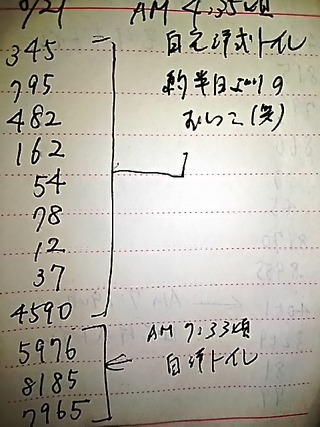 AM 4:35頃
345
自宅洋式トイレ
795
約半日ぶりの
482
おしっこ(笑)
162
54
78
12
37
4590
AM 7:33頃
5976
自洋トイレ
8185
7965